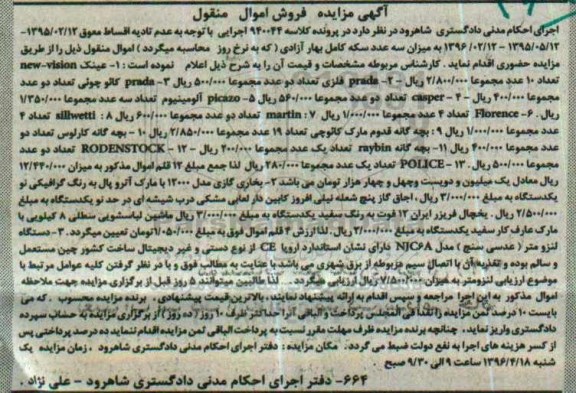 آگهی مزایده فروش اموال منقول
اجرای احکام مدنی دادگستری شاهرود در نظر دارد در پرونده کلاسه ۹۴۰۰۴۴ اجرایی با توجه به عدم تادیه اقساط معوق ۱۳۹۵/۰۲/۱۲-
۱۳۹۵/۰۵/۱۲-۱۳۹۶/۰۲/۱۲ به میزان سه عدد سکه کامل بهار آزادی ( که به نرخ روز محاسبه میگردد ) اموال منقول ذیل را از طریق
مزایده حضوری اقدام نماید . کارشناس مربوطه مشخصات و قیمت آن را به شرح ذیل اعلام نموده است : ۱- عینک new-vision
تعداد ۱۰ عدد مجموعا ۲/۸۰۰/۰۰۰ ریال -۲- prada فلزی تعداد دو عدد مجموعا ۵۰۰/۰۰۰ ریال ۳- prada کائو چوئی تعداد دو عدد
مجموعا ۴۰۰/۰۰۰ ریال - ۴ - casper تعداد دو عدد مجموعا ۵۶۰/۰۰۰ ریال ۵- picazo آلومینیوم تعداد سه عدد مجموعا ۱/۳۵۰/۰۰۰
ریال . ۶- Florence تعداد ۴ عدد مجموعا ۱/۰۰۰/۰۰۰ ریال ۷ : martin تعداد دو عدد مجموعا ۶۰۰/۰۰۰ ریال ۸ : sillwetti تعداد ۴
عدد مجموعا ۱/۰۰۰/۰۰۰ ریال ۹ : بچه گانه قدوم مارک کائوچی تعداد ۱۹ عدد مجموعا ۲/۸۵۰/۰۰۰ ریال ۱۰ - بچه گانه کارلوس تعداد دو
عدد مجموعا ۴۰۰/۰۰۰ ریال ۱۱- بچه گانه raybin تعداد یک عدد مجموعا ۲۰۰/۰۰۰ ریال - ۱۲ - RODENSTOCK تعداد دو عدد
مجموعا ۵۰۰/۰۰۰ ریال ۱۳- POLICE تعداد یک عدد مجموعا ۲۸۰/۰۰۰ ریال لذا جمع مبلغ ۱۳ قلم اموال مذکور به میزان ۱۲/۴۴۰/۰۰۰
ریال معادل یک میلیون و دویست وچهل و چهار هزار تومان می باشد ۲- بخاری گازی مدل ۱۲۰۰۰ با مارک آترو پال به رنگ گرافیکی نو
یکدستگاه به مبلغ ۳/۰۰۰/۰۰۰ ریال . اجاق گاز پنج شعله نیلی افروز کابین دار لعابی مشکی درب شیشه ای در حد نو یکدستگاه به مبلغ
۲/۵۰۰/۰۰۰ ریال . یخچال فریزر ایران ۱۲ فوت به رنگ سفید یکدستگاه به مبلغ ۳/۰۰۰/۰۰۰ ریال ماشین لباسشویی سطلی ۸ کیلویی با
مارک عارف کار سفید یکدستگاه به مبلغ ۲/۰۰۰/۰۰۰ ریال . لذا ارزش ۴ قلم اموال فوق به مبلغ ۱/۰۵۰/۰۰۰ تومان تعیین میگردد . ۳- دستگاه
لنزو متر ( عدسی سنج ) مدل NJC6A دارای نشان استاندارد اروپا CE از نوع دستی و غیر دیجیتال ساخت کشور چین مستعمل
و سالم بوده و تغذیه آن با اتصال سیم مربوطه از برق شهری می باشد با عنایت به مطالب فوق و با در نظر گرفتن کلیه عوامل مرتبط با
موضوع ارزیابی لنزومتر به میزان ۷/۵۰۰/۰۰۰ ریال ارزیابی میگردد . لذا طالبین میتوانند ۵ روز قبل از برگزاری مزایده جهت ملاحظه
اموال مذکور به این اجرا مراجعه و سپس اقدام به ارائه پیشنهاد نمایند . بالاترین قیمت پیشنهادی ، برنده مزایده محسوب . که می
بایست ۱۰ درصد ثمن مزایده را نقداً فی المجلس پرداخت و الباقی آنرا حداکثر ظرف ۱۰ روز ( ده روز ) از برگزاری مزایده به حساب سپرده
دادگستری واریز نماید . چنانچه برنده مزایده ظرف مهلت مقرر نسبت به پرداخت الباقی ثمن مزایده اقدام ننماید ده درصد پرداختی پس
از کسر هزینه های اجرا به نفع دولت ضبط می گردد . مکان مزایده : دفتر اجرای احکام مدنی دادگستری شاهرود . زمان مزایده یک
شنبه ۱۳۹۶/۴/۱۸ ساعت ۹ الی ۹/۳۰ صبح .
۶۶۴- دفتر اجرای احکام مدنی دادگستری شاهرود - علی نژاد .